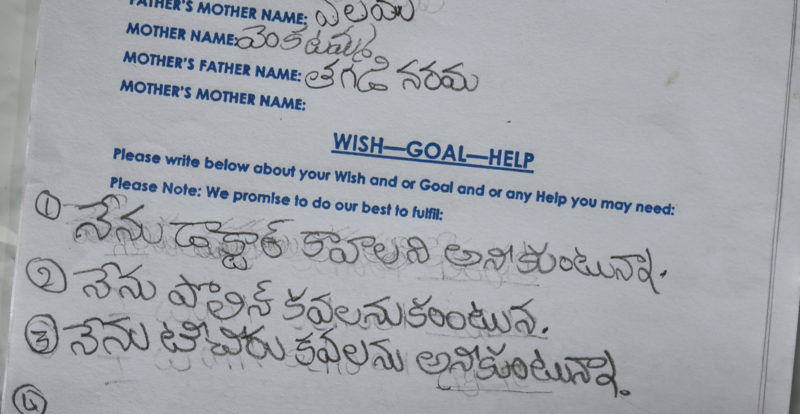 FATHER'S MOTHER NAME: ఎలమ
MOTHER NAME: వెంకటమ్మ
MOTHER'S FATHER NAME: తగడి నరమ
MOTHER'S MOTHER NAME:
WISH—GOAL—HELP
Please write below about your Wish and or Goal and or any Help you may need:
Please Note: We promise to do our best to fulfil:
① నేను డాక్టార్ కావాలని అనీకుంటున్నా.
② నేను పొలిస్ కవలనుకంంటున.
③ నేను టీచీరు కవలను అనీకుంటున్నా.
④